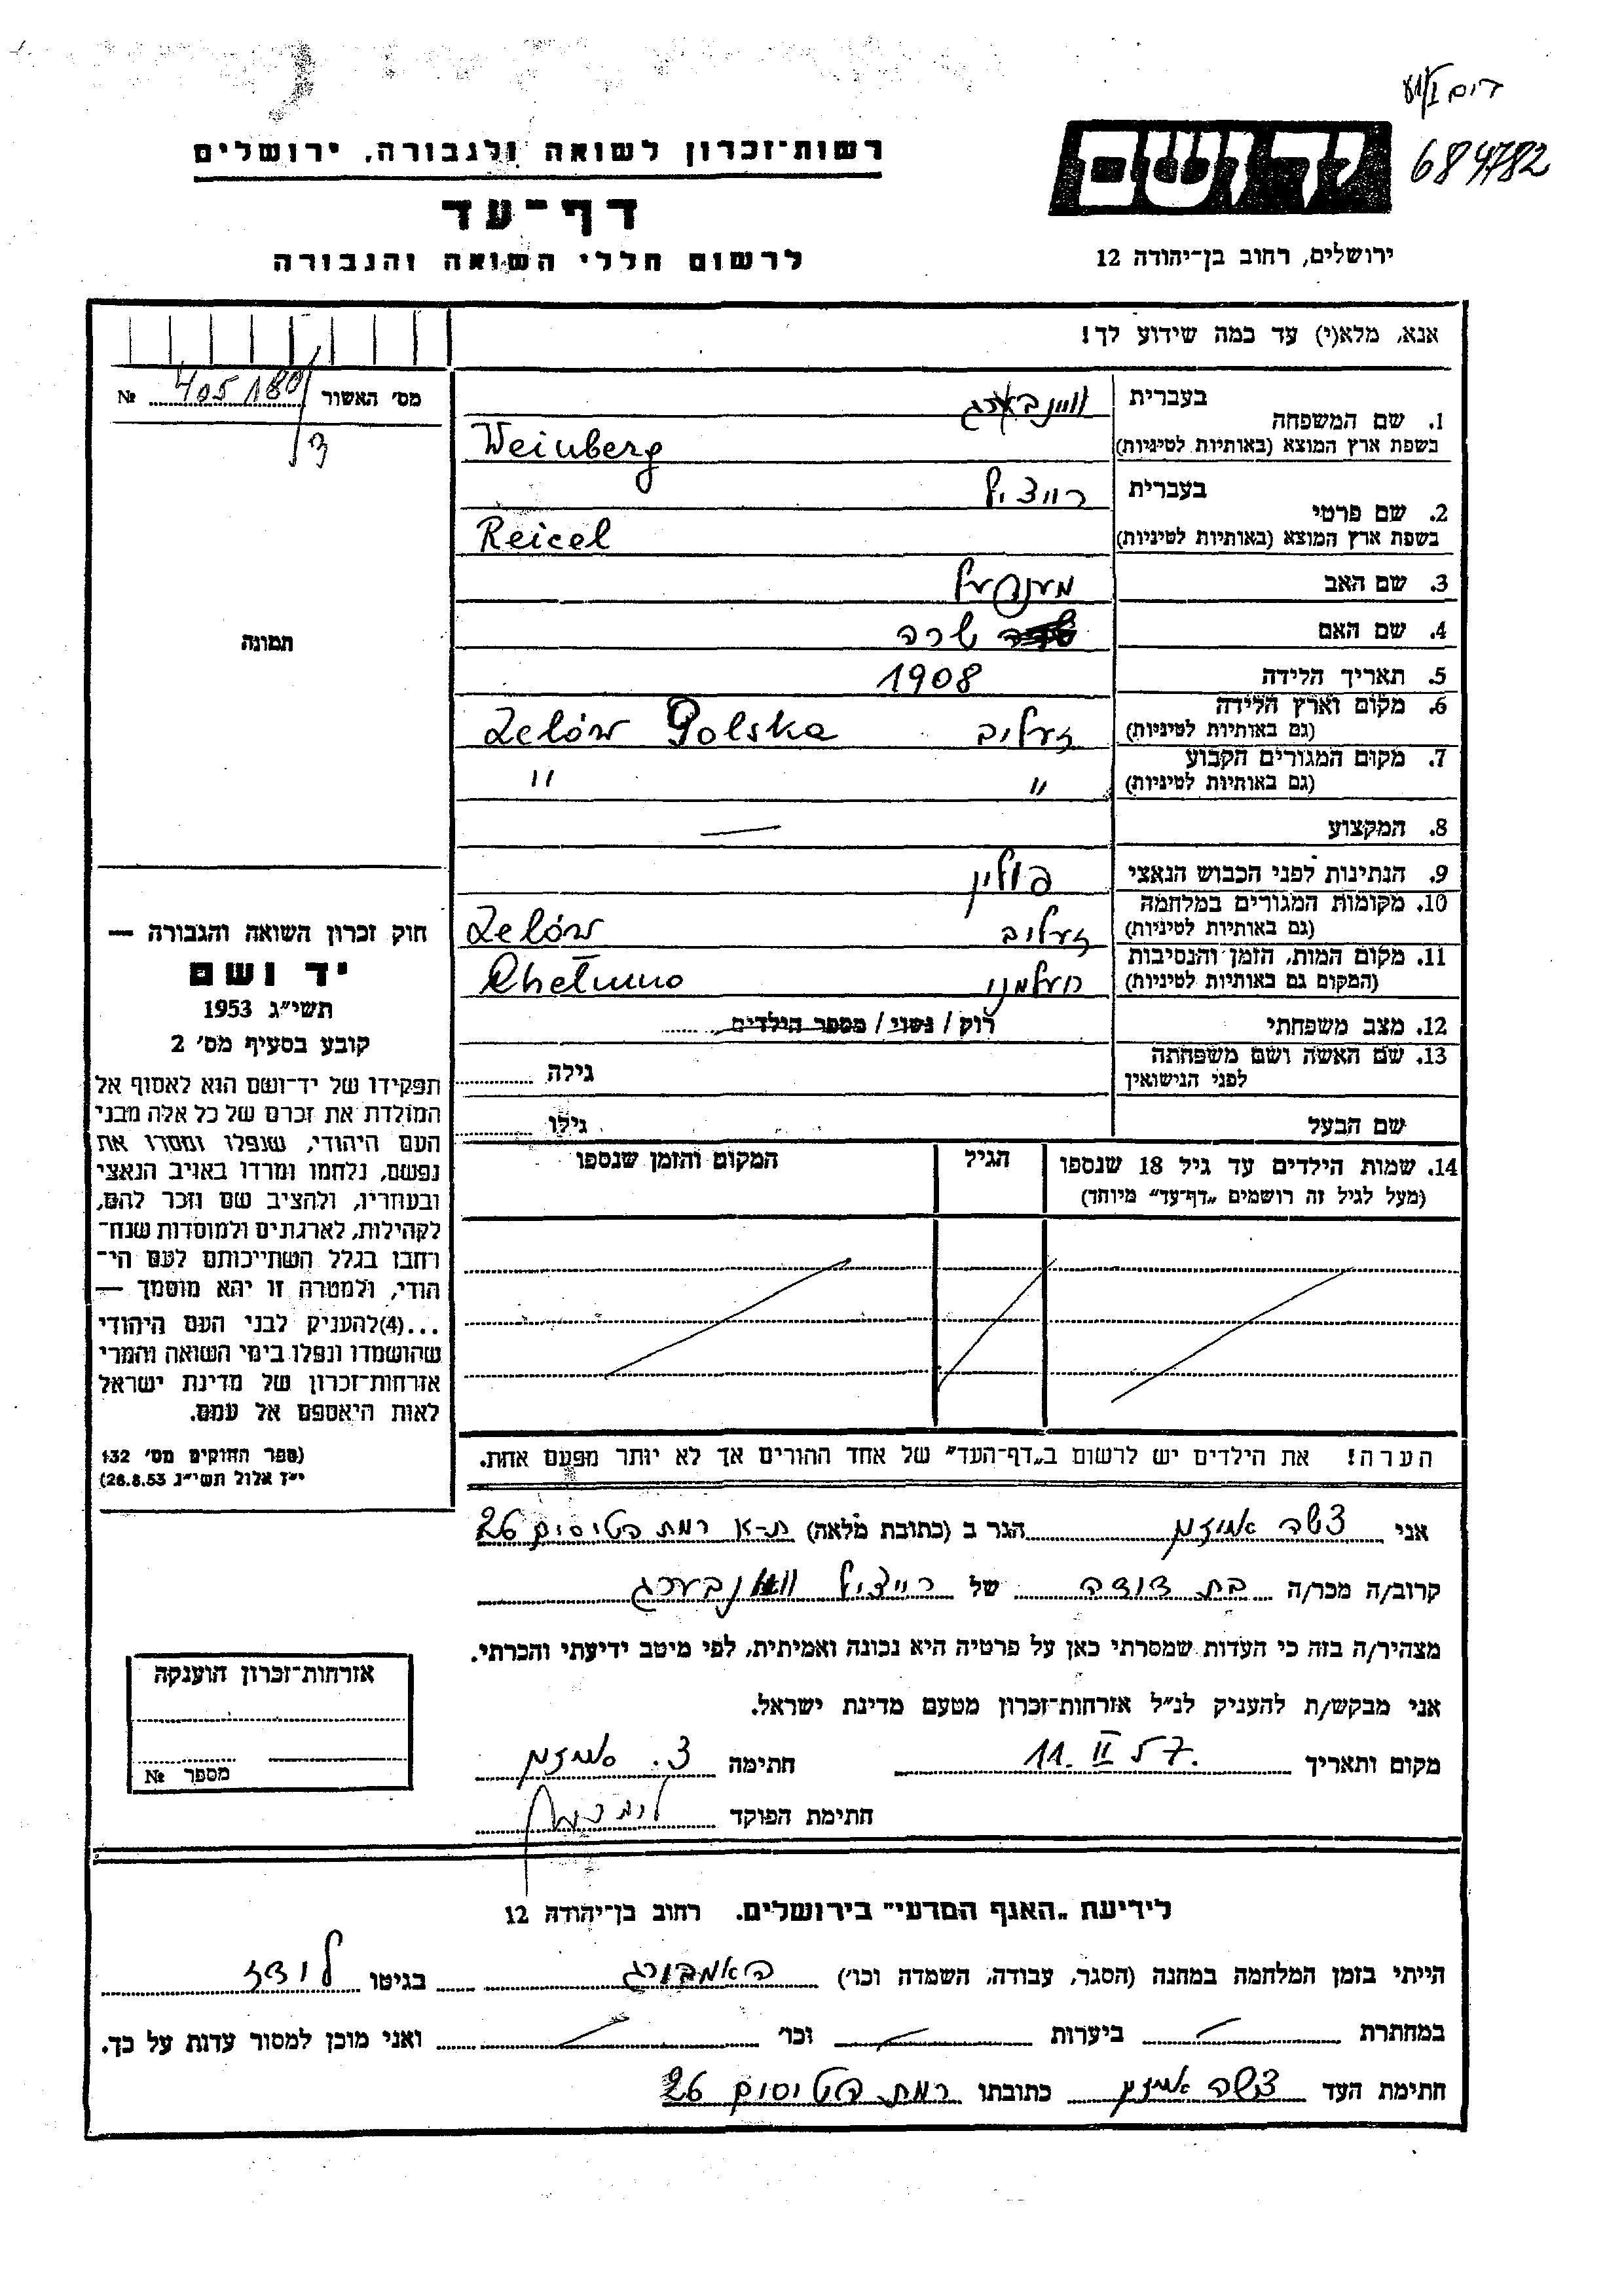 684782
ידושם
ירושלים, רחוב בן־יהודה 12
רשות־זכרון לשואה ולגבורה, ירושלים
דף־עד
לרשום חללי השואה והגבורה
אנא, מלא(י) עד כמה שידוע לך!
מס' האשור 405180 №
3
1. שם המשפחה
בעברית וויינבארג
בשפת ארץ המוצא (באותיות לטיניות) Weinberg
2. שם פרטי
בעברית רייציל
בשפת ארץ המוצא (באותיות לטיניות) Reicel
3. שם האב מענדעל
4. שם האם שרה
5. תאריך הלידה 1908
6. מקום וארץ הלידה
(גם באותיות לטיניות) זעליב Zelów Polska
7. מקום המגורים הקבוע
(גם באותיות לטיניות) " "
8. המקצוע —
9. הנתינות לפני הכבוש הנאצי פולין
10. מקומות המגורים במלחמה
(גם באותיות לטיניות) זעליב Zelów
11. מקום המות, הזמן והנסיבות
(המקום גם באותיות לטיניות) העלמנו Chełmno
12. מצב משפחתי רוק / נשוי / מספר הילדים
13. שם האשה ושם משפחתה
לפני הנישואין גילה
שם הבעל גילו
14. שמות הילדים עד גיל 18 שנספו הגיל המקום והזמן שנספו
(מעל לגיל זה רושמים „דף־עד" מיוחד)
הערה! את הילדים יש לרשום ב„דף־העד" של אחד ההורים אך לא יותר מפעם אחת.
תמונה
חוק זכרון השואה והגבורה —
יד ושם
תשי"ג 1953
קובע בסעיף מס' 2
תפקידו של יד־ושם הוא לאסוף אל
המולדת את זכרם של כל אלה מבני
העם היהודי, שנפלו ומסרו את
נפשם, נלחמו ומרדו באויב הנאצי
ובעוזריו, ולהציב שם וזכר להם,
לקהילות, לארגונים ולמוסדות שנח־
רחבו בגלל השתייכותם לעם הי־
הודי, ולמטרה זו יהא מוסמך —
...(4)להעניק לבני העם היהודי
שהושמדו ונפלו בימי השואה והמרי
אזרחות־זכרון של מדינת ישראל
לאות היאספם אל עמם.
(ספר החוקים מס' 132
י"ז אלול תשי"ג 28.8.53)
אני צשה הגר ב (כתובת מלאה) ת-א רמת הטיסים 26
קרוב/ה מכר/ה בת דודה של רייציל וויינבערג
מצהיר/ה בזה כי העדות שמסרתי כאן על פרטיה היא נכונה ואמיתית, לפי מיטב ידיעתי והכרתי.
אני מבקש/ת להעניק לנ"ל אזרחות־זכרון מטעם מדינת ישראל.
מקום ותאריך 11. II 57. חתימה צ.
חתימת הפוקד
אזרחות־זכרון הוענקה
מספר №
לידיעת „האגף המדעי" בירושלים. רחוב בן־יהודה 12
הייתי בזמן המלחמה במחנה (הסגר, עבודה, השמדה וכו') האמבורג בגיטו לודז
במחתרת — ביערות — וכו' — ואני מוכן למסור עדות על כך.
חתימת העד צשה כתובתו רמת הטיסים 26